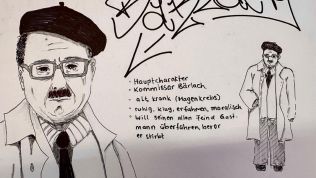 Bärlach
- Hauptcharakter
- Kommissar Bärlach
- alt, krank (Magenkrebs)
- ruhig, klug, erfahren, moralisch
- Will seinen alten Feind Gast-
mann überführen, bevor
er stirbt